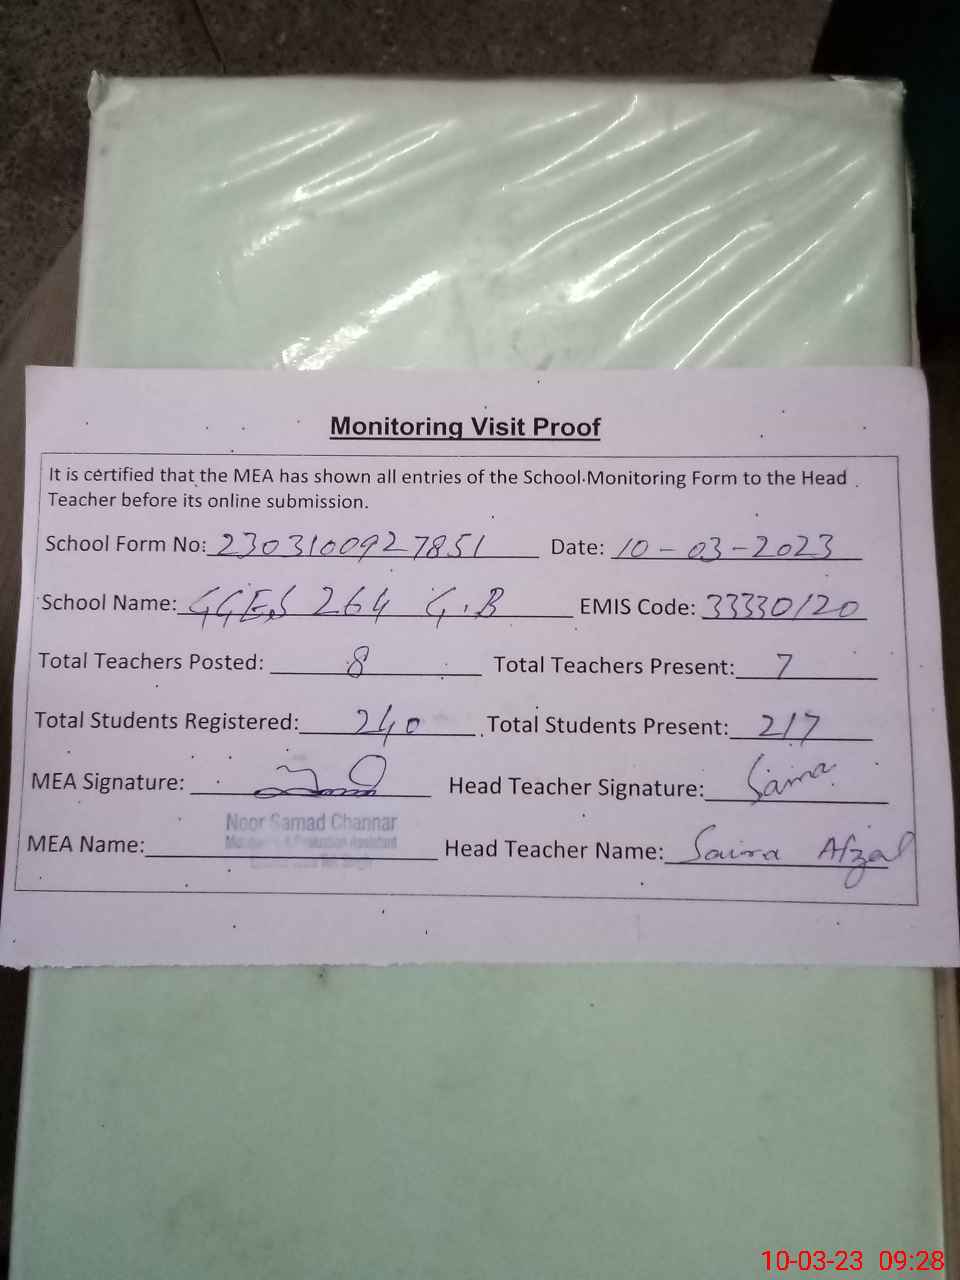 Monitoring Visit Proof
It is certified that the MEA has shown all entries of the School Monitoring Form to the Head
Teacher before its online submission.
School Form No: 2303100927851 Date: 10-03-2023
School Name: GGES 264 G.B EMIS Code: 33330120
Total Teachers Posted: 8 Total Teachers Present: 7
Total Students Registered: 240 Total Students Present: 217
MEA Signature: Head Teacher Signature: Saima
Noor Samad Channar
MEA Name: Head Teacher Name: Saima Afzal
10-03-23 09:28